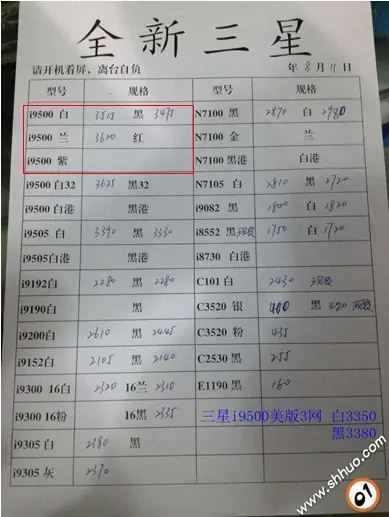 全新三星
请开机看屏，离台自负 年 8 月 11 日
型号 规格 型号 规格
i9500 白 3515 黑 3475 N7100 黑 2870 白 2980
i9500 兰 3620 红 N7100 金 兰
i9500 紫 N7100 黑港 白港
i9500 白32 3625 黑32 N7105 白 2810 黑 2720
i9500 白港 黑港 i9082 黑 1800 白 1820
i9505 白 3390 黑 3330 i8552 黑 1750 白 1720
i9505白港 黑港 i8730 白港
i9192白 2280 黑 2280 C101 白 2430
i9190白 黑 C3520 银 400 黑 420
i9200白 2610 黑 2445 C3520 粉 435
i9152白 2105 黑 2140 C2530 黑 255
i9300 16白 2320 16兰 2310 E1190 黑 160
i9300 16粉 16黑 2335
三星i9500美版3网 白3350
黑3380
i9305 白 2380 黑
i9305 灰 2370
www.shhuo.com